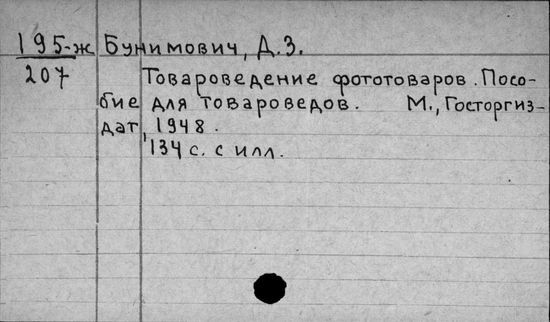 195-ж Бунимович, Д.З.
207 Товароведение фототоваров. Посо-
бие для товароведов. М., Госторгиз-
дат, 1948.
134 с. с илл.